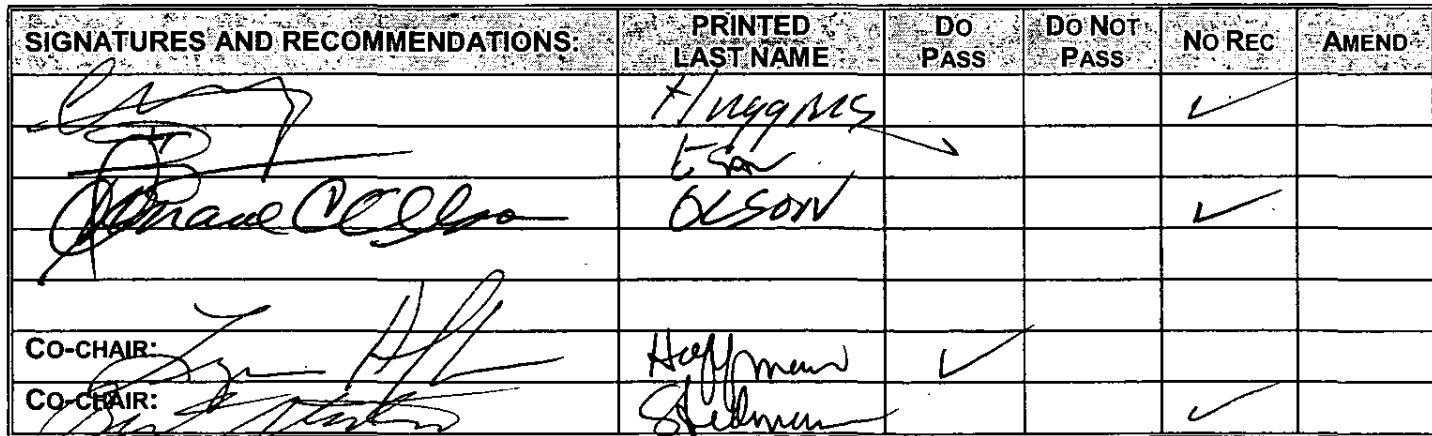 SIGNATURES AND RECOMMENDATIONS: PRINTED LAST NAME DO PASS DO NOT PASS NO REC AMEND
Huggins ✓
✓
Donald C Olson OLSON ✓
CO-CHAIR: Hoffman ✓
CO-CHAIR: Bert Stedman Stedman ✓